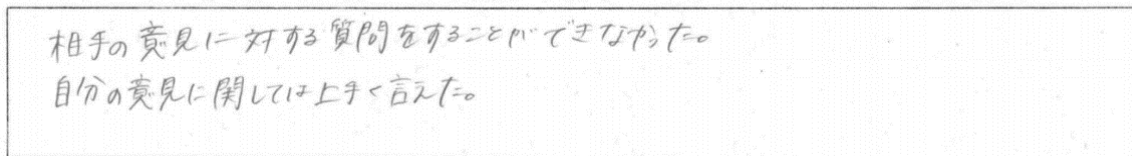 相手の意見に対する質問をすることができなかった。
自分の意見に関しては上手く言えた。